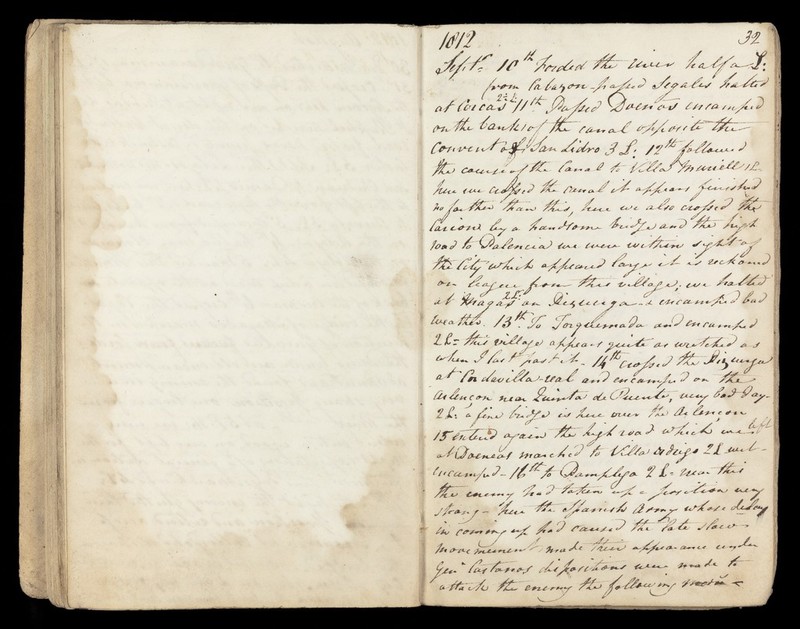 1812 32
Septr. 10th Forded the river half a L:
from Cabazon passed Segales halted
at Corcas 2½ L. 11th Passed Duenas encamped
on the banks of the canal opposite the
Convent of San Lidro 3 L: 12th followed
the course of the Canal to Villa Muriell 1 L.
here we crossed the canal it appears finished
no farther than this, here we also crossed the
Carion by a handsome bridge and the high
road to Palencia we were within sight of
the City which appeared large it is reckoned
on league from this village, we halted
at Magas 2 L: on Pizuerga encamped bad
weather. 13th. To Torquemada and encamped
2 L= this village appears quite as wretched as
when I last past it. 14th crossed the Pizuerga
at Cordevilla real and encamped on the
Arlencon near Quinta de Puente, very bad day-
2 L: a fine bridge is here over the Arlencon
15 entered again the high road which we left
at Duenas marched to Villa 2 L wet-
encamped- 16th to Pampliga 2 L- near this
the enemy had taken up a position very
strong- here the Spanish Army whose delay
in coming up had caused the late slow
movements made their appearance under
Genl Castanos dispositions were made to
attack the enemy the following morn-